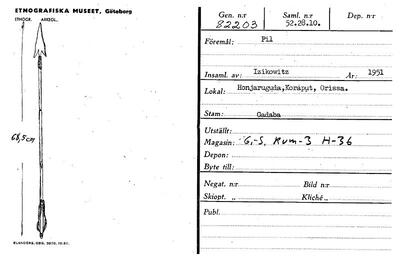 ETNOGRAFISKA MUSEET, Göteborg
ETNOGR. ARKEOL.
68,5cm
ELANDERS, GBG, 3010, 10.51.
Gen. n:r Saml. n:r Dep. n:r
82203 52.28.10.
Föremål: Pil
Insaml. av: Izikowitz År: 1951
Lokal: Honjaruguda,Koraput, Orissa.
Stam: Gadaba
Utställt:
Magasin: G.-S. Rum-3 H-36
Depon:
Byte till:
Negat. n:r Bild n:r
Skiopt. „ Kliché „
Publ.